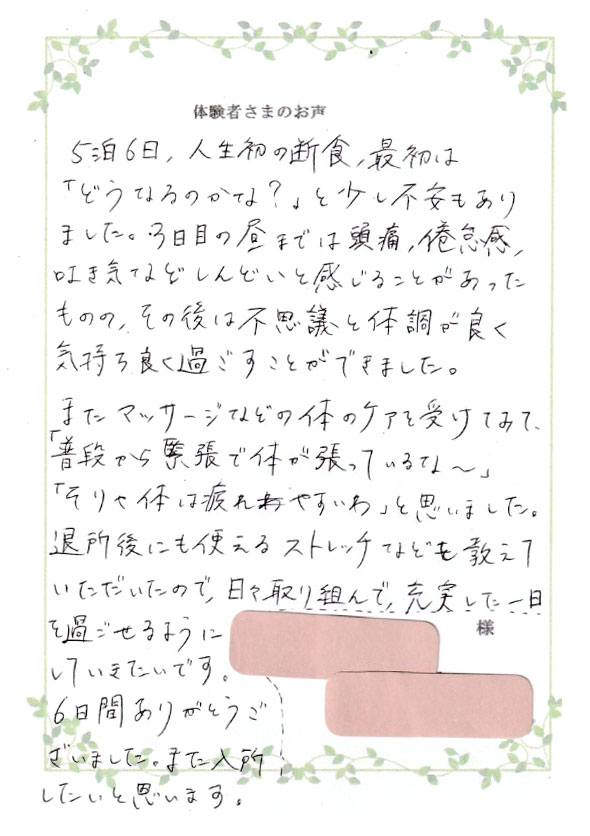 体験者さまのお声
5泊6日、人生初の断食、最初は
「どうなるのかな？」と少し不安もあり
ました。3日目の昼までは頭痛、倦怠感、
吐き気などしんどいと感じることがあった
ものの、その後は不思議と体調が良く
気持ち良く過ごすことができました。
またマッサージなどの体のケアを受けてみて、
「普段から緊張で体が張っているな〜」
「そりゃ体は疲れやすいわ」と思いました。
退所後にも使えるストレッチなども教えて
いただいたので、日々取り組んで、充実した一日
を過ごせるように
していきたいです。
様
6日間ありがとうご
ざいました。また入所
したいと思います。